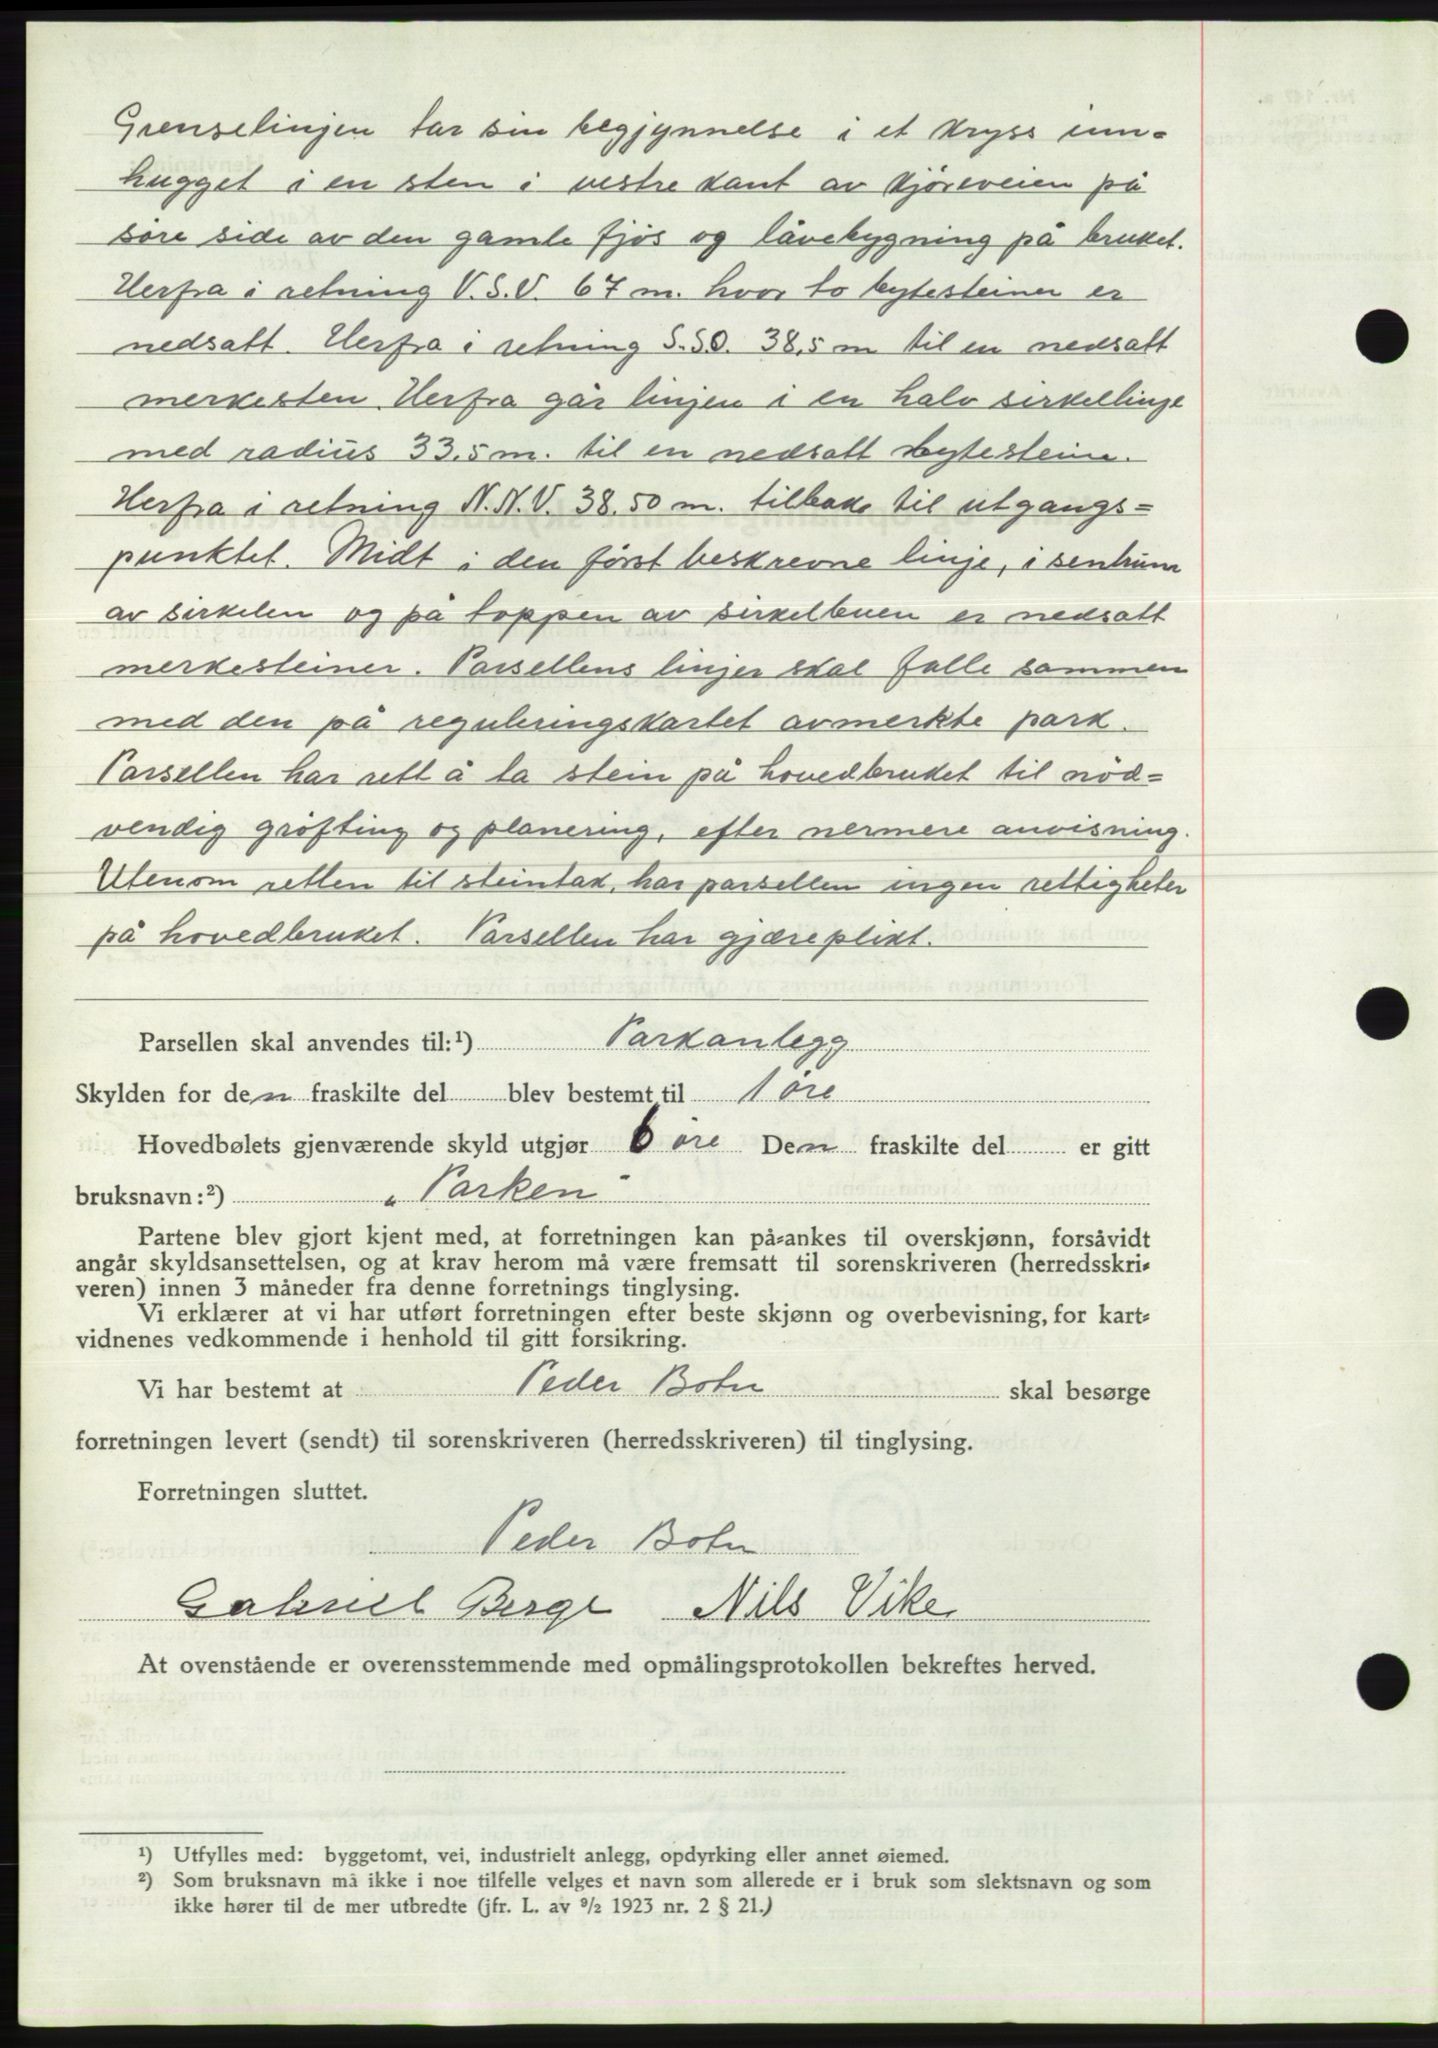 Grenselinjen tar sin begjynnelse i et kryss inn=
hugget i en sten i vestre kant av kjøreveien på
søre side av den gamle fjøs og låvebygning på bruket.
Herfra i retning V.S.V. 67 m. hvor to bytesteiner er
nedsatt. Herfra i retning S.S.O. 38,5 m til en nedsatt
merkesten. Herfra går linjen i en halv sirkellinje
med radius 33,5 m. til en nedsatt bytesteine.
Herfra i retning N.N.V. 38.50 m. tilbake til utgangs=
punktet. Midt i den først beskrevne linje, i sentrum
av sirkelen og på toppen av sirkelbuen er nedsatt
merkesteiner. Parsellens linjer skal falle sammen
med den på reguleringskartet avmerkte park.
Parsellen har rett å ta stein på hovedbruket til nød=
vendig grøfting og planering, efter nermere anvisning.
Utenom retten til steintak, har parsellen ingen rettigheter
på hovedbruket. Parsellen har gjæreplikt.
Parsellen skal anvendes til:¹) Parkanlegg
Skylden for den fraskilte del blev bestemt til 1 øre
Hovedbølets gjenværende skyld utgjør 6 øre Den fraskilte del er gitt
bruksnavn:²) „Parken"
Partene blev gjort kjent med, at forretningen kan på-ankes til overskjønn, forsåvidt
angår skyldsansettelsen, og at krav herom må være fremsatt til sorenskriveren (herredsskri-
veren) innen 3 måneder fra denne forretnings tinglysing.
Vi erklærer at vi har utført forretningen efter beste skjønn og overbevisning, for kart-
vidnenes vedkommende i henhold til gitt forsikring.
Vi har bestemt at Peder Botn skal besørge
forretningen levert (sendt) til sorenskriveren (herredsskriveren) til tinglysing.
Forretningen sluttet.
Peder Botn
Gabriel Berge Nils Vike
At ovenstående er overensstemmende med opmålingsprotokollen bekreftes herved.
¹) Utfylles med: byggetomt, vei, industrielt anlegg, opdyrking eller annet øiemed.
²) Som bruksnavn må ikke i noe tilfelle velges et navn som allerede er i bruk som slektsnavn og som
ikke hører til de mer utbredte (jfr. L. av ⁹/₂ 1923 nr. 2 § 21.)